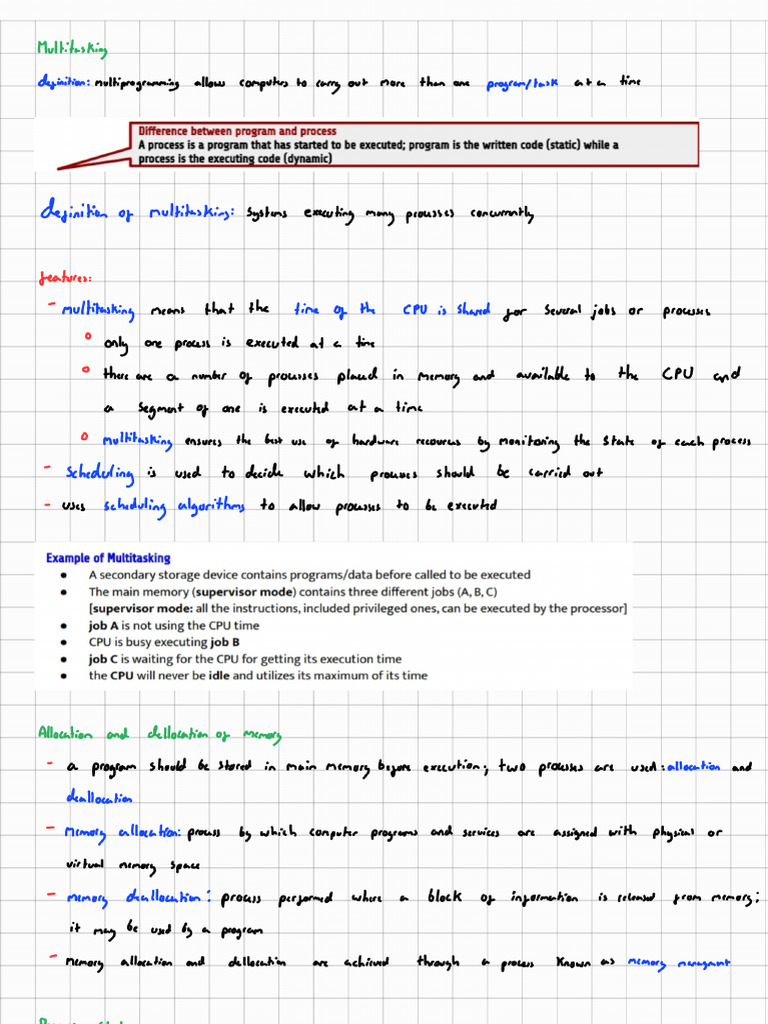 Multitasking
definition: multiprogramming allows computers to carry out more than one program/task at a time
Difference between program and process
A process is a program that has started to be executed; program is the written code (static) while a
process is the executing code (dynamic)
definition of multitasking: Systems executing many processes concurrently
features:
- multitasking means that the time of the CPU is shared for several jobs or processes
o only one process is executed at a time
o there are a number of processes placed in memory and available to the CPU and
a segment of one is executed at a time
o multitasking ensures the best use of hardware recources by monitoring the state of each process
- Scheduling is used to decide which processes should be carried out
- uses scheduling algorithms to allow processes to be executed
Example of Multitasking
• A secondary storage device contains programs/data before called to be executed
• The main memory (supervisor mode) contains three different jobs (A, B, C)
[supervisor mode: all the instructions, included privileged ones, can be executed by the processor]
• job A is not using the CPU time
• CPU is busy executing job B
• job C is waiting for the CPU for getting its execution time
• the CPU will never be idle and utilizes its maximum of its time
Allocation and dellocation of memory
- a program should be stored in main memory before execution; two processes are used: allocation and
deallocation
- Memory allocation: process by which computer programs and services are assigned with physical or
virtual memory space
- memory deallocation: process performed where a block of information is released from memory;
it may be used by a program
- memory allocation and dellocation are achieved through a process known as memory managment